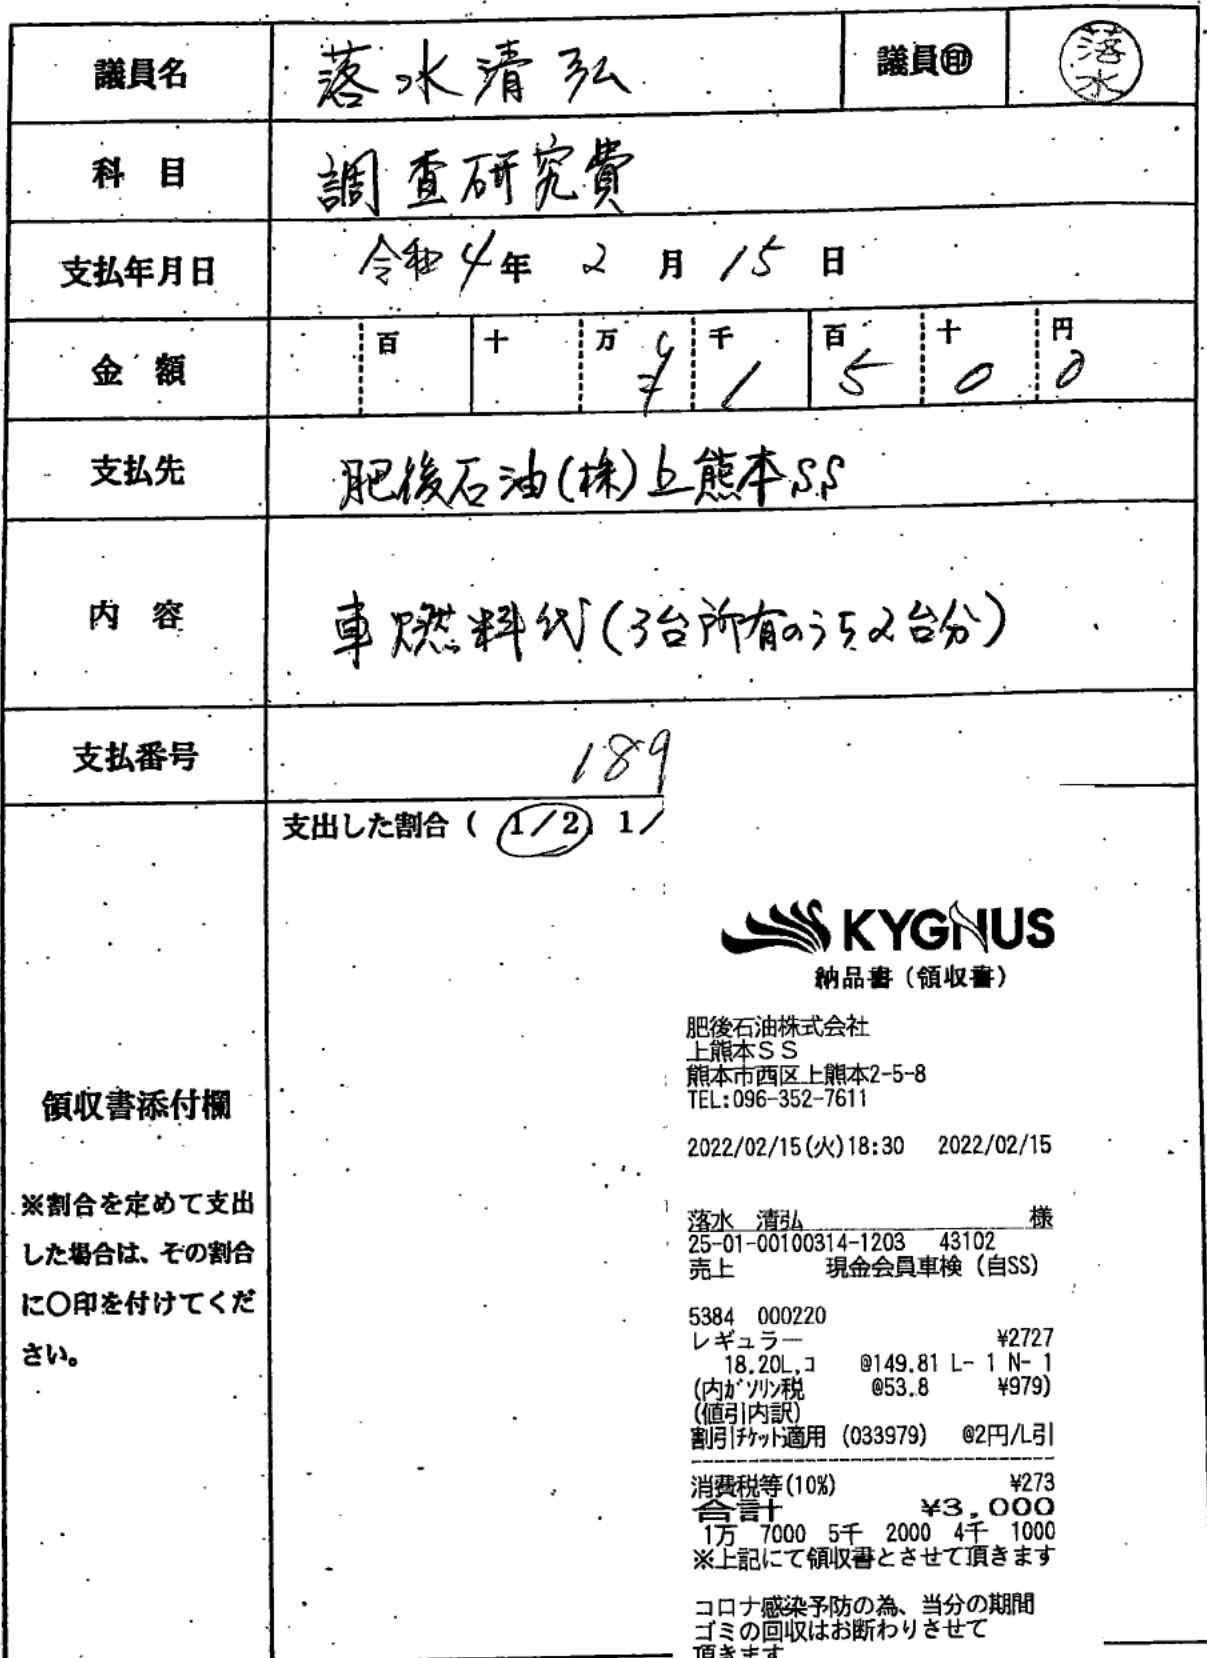 議員名 落水清弘 議員㊞ 落水
科 目 調査研究費
支払年月日 令和4年 2月 15日
金 額 百 十 万 千 百 十 円
¥ 1 5 0 0
支払先 肥後石油(株)上熊本SS
内 容 車燃料代(3台所有のうち2台分)
支払番号 189
支出した割合( 1/2 1/
KYGNUS
納品書(領収書)
肥後石油株式会社
上熊本SS
熊本市西区上熊本2-5-8
TEL:096-352-7611
2022/02/15(火)18:30 2022/02/15
落水 清弘 様
25-01-00100314-1203 43102
売上 現金会員車検(自SS)
5384 000220
レギュラー ¥2727
18.20L,コ @149.81 L- 1 N- 1
(内ガソリン税 @53.8 ¥979)
(値引内訳)
割引チケット適用 (033979) @2円/L引
消費税等(10%) ¥273
合計 ¥3,000
1万 7000 5千 2000 4千 1000
※上記にて領収書とさせて頂きます
コロナ感染予防の為、当分の期間
ゴミの回収はお断わりさせて
頂きます
領収書添付欄
※割合を定めて支出
した場合は、その割合
に〇印を付けてくだ
さい。